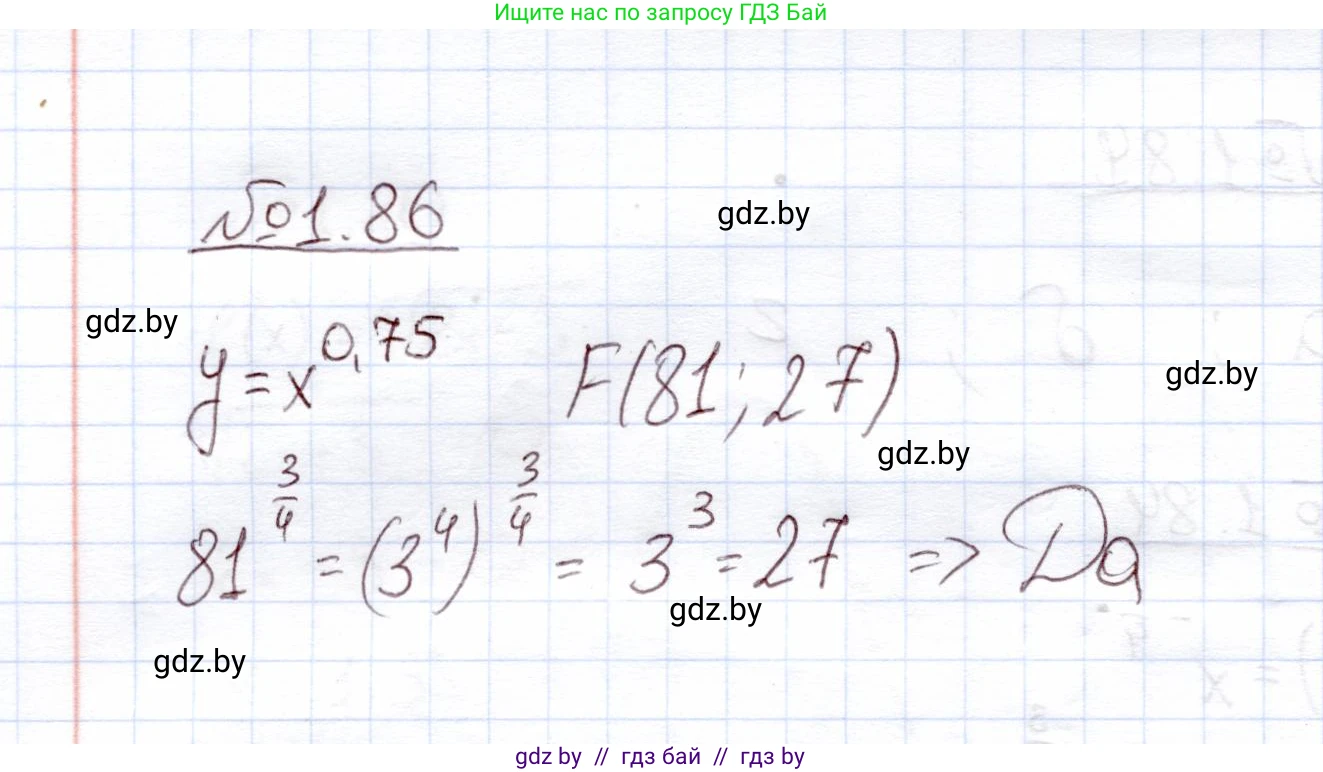 Ищите нас по запросу ГДЗ Бай
№1.86
gdz.by
gdz.by
y = x^0,75 F(81; 27)
gdz.by
gdz.by
81^3/4 = (3^4)^3/4 = 3^3 = 27 => Да
gdz.by
gdz.by
gdz by // гдз бай // гдз by